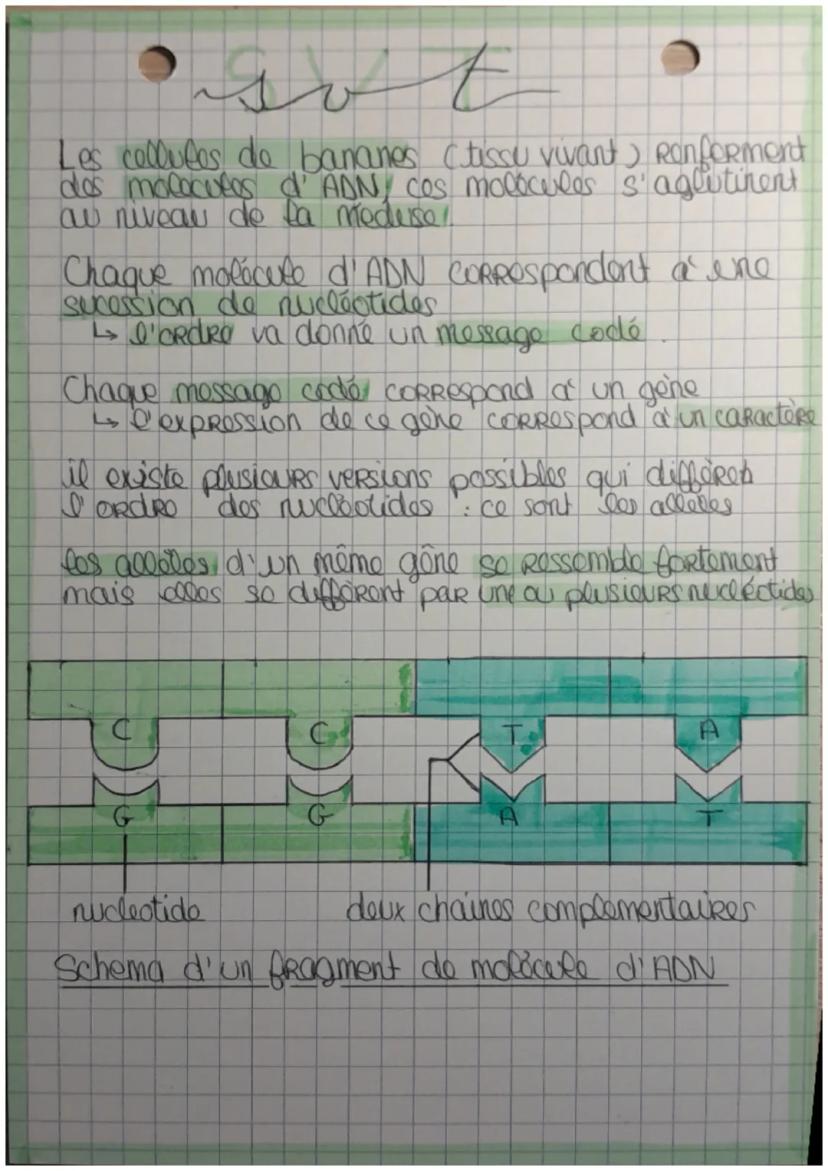 SVT
svt
Les cellules de bananes (tissu vivant) renferment
des molécules d'ADN, ces molécules s'aglutinent
au niveau de la méduse!
Chaque molécule d'ADN correspondent à une
sucession de nucléotides
↳ l'ordre va donné un message codé.
Chaque message codé correspond à un gène
↳ l'expression de ce gène correspond à un caractère
il existe plusieurs versions possibles qui différen
l'ordre des nucléotides : ce sont les allèles
les allèles d'un même gène se ressemble fortement
mais elles se différent par une ou plusieurs nucléotides
C C T A
G G A T
nucleotide deux chaines complementaires
Schema d'un fragment de molécule d'ADN